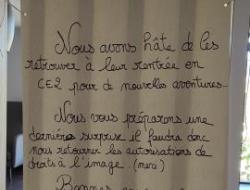 Nous avons hâte de les
retrouver à leur rentrée en
CE2 pour de nouvelles aventures.
Nous vous préparons une
dernière surprise il faudra donc
nous retourner les autorisations de
droits à l'image. (merci)